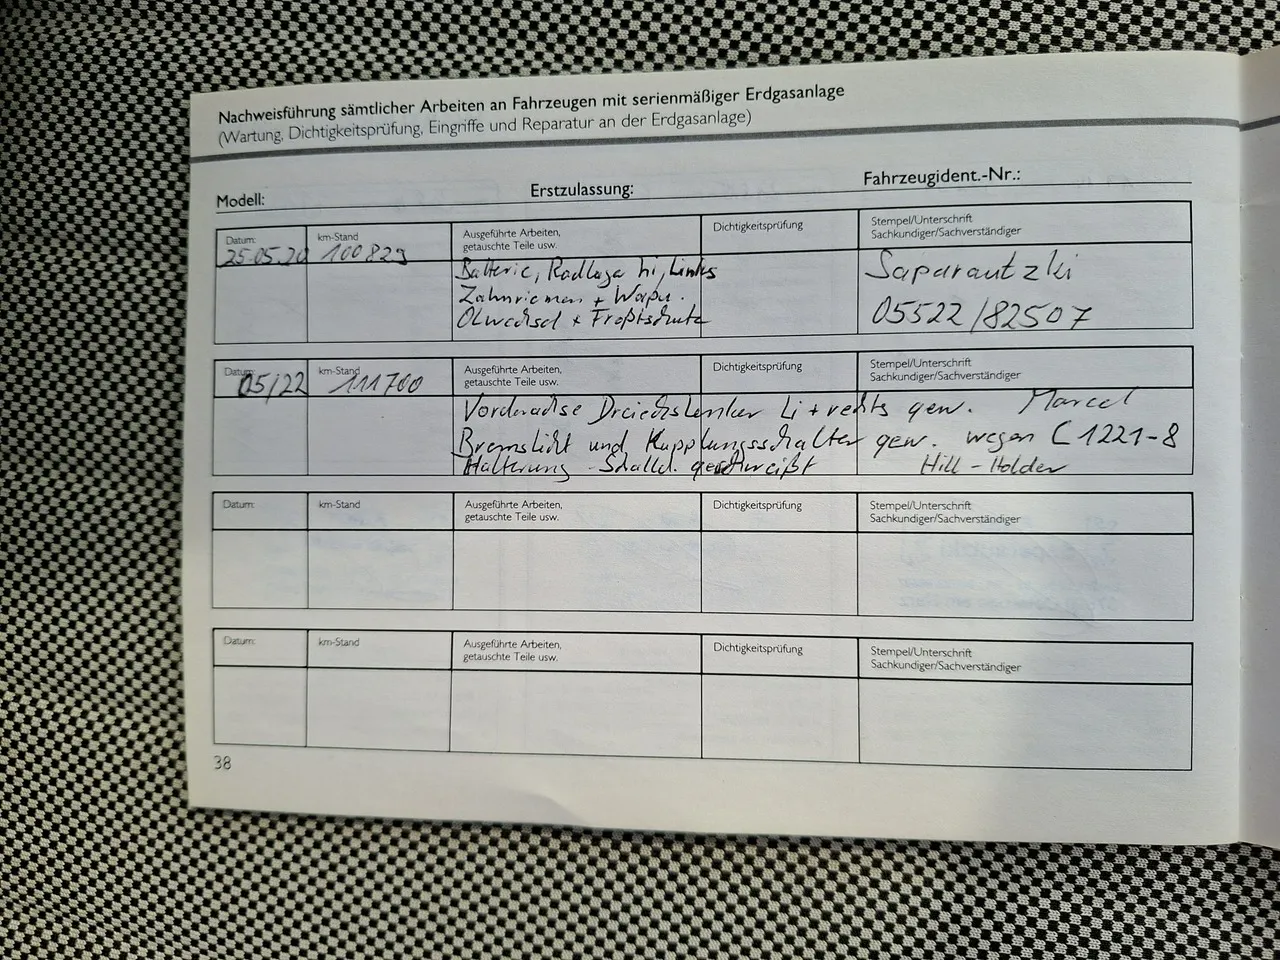 Nachweisführung sämtlicher Arbeiten an Fahrzeugen mit serienmäßiger Erdgasanlage
(Wartung, Dichtigkeitsprüfung, Eingriffe und Reparatur an der Erdgasanlage)
Modell: Erstzulassung: Fahrzeugident.-Nr.:
Datum: km-Stand Ausgeführte Arbeiten, Dichtigkeitsprüfung Stempel/Unterschrift
getauschte Teile usw. Sachkundiger/Sachverständiger
25.05.20 100829
Batterie, Radlage hi, Links Saparautzki
Zahnriemen + Wapu.
Ölwechsel + Froßtschutz 05522/82507
Datum: km-Stand Ausgeführte Arbeiten, Dichtigkeitsprüfung Stempel/Unterschrift
getauschte Teile usw. Sachkundiger/Sachverständiger
05/22 111700
Vorderachse Dreieckslenker Li + rechts gew. Marcel
Bremslicht und Kupplungsschalter gew. wegen C1221-8
Halterung Schalld. geschweißt Hill-Holder
Datum: km-Stand Ausgeführte Arbeiten, Dichtigkeitsprüfung Stempel/Unterschrift
getauschte Teile usw. Sachkundiger/Sachverständiger
Datum: km-Stand Ausgeführte Arbeiten, Dichtigkeitsprüfung Stempel/Unterschrift
getauschte Teile usw. Sachkundiger/Sachverständiger
38